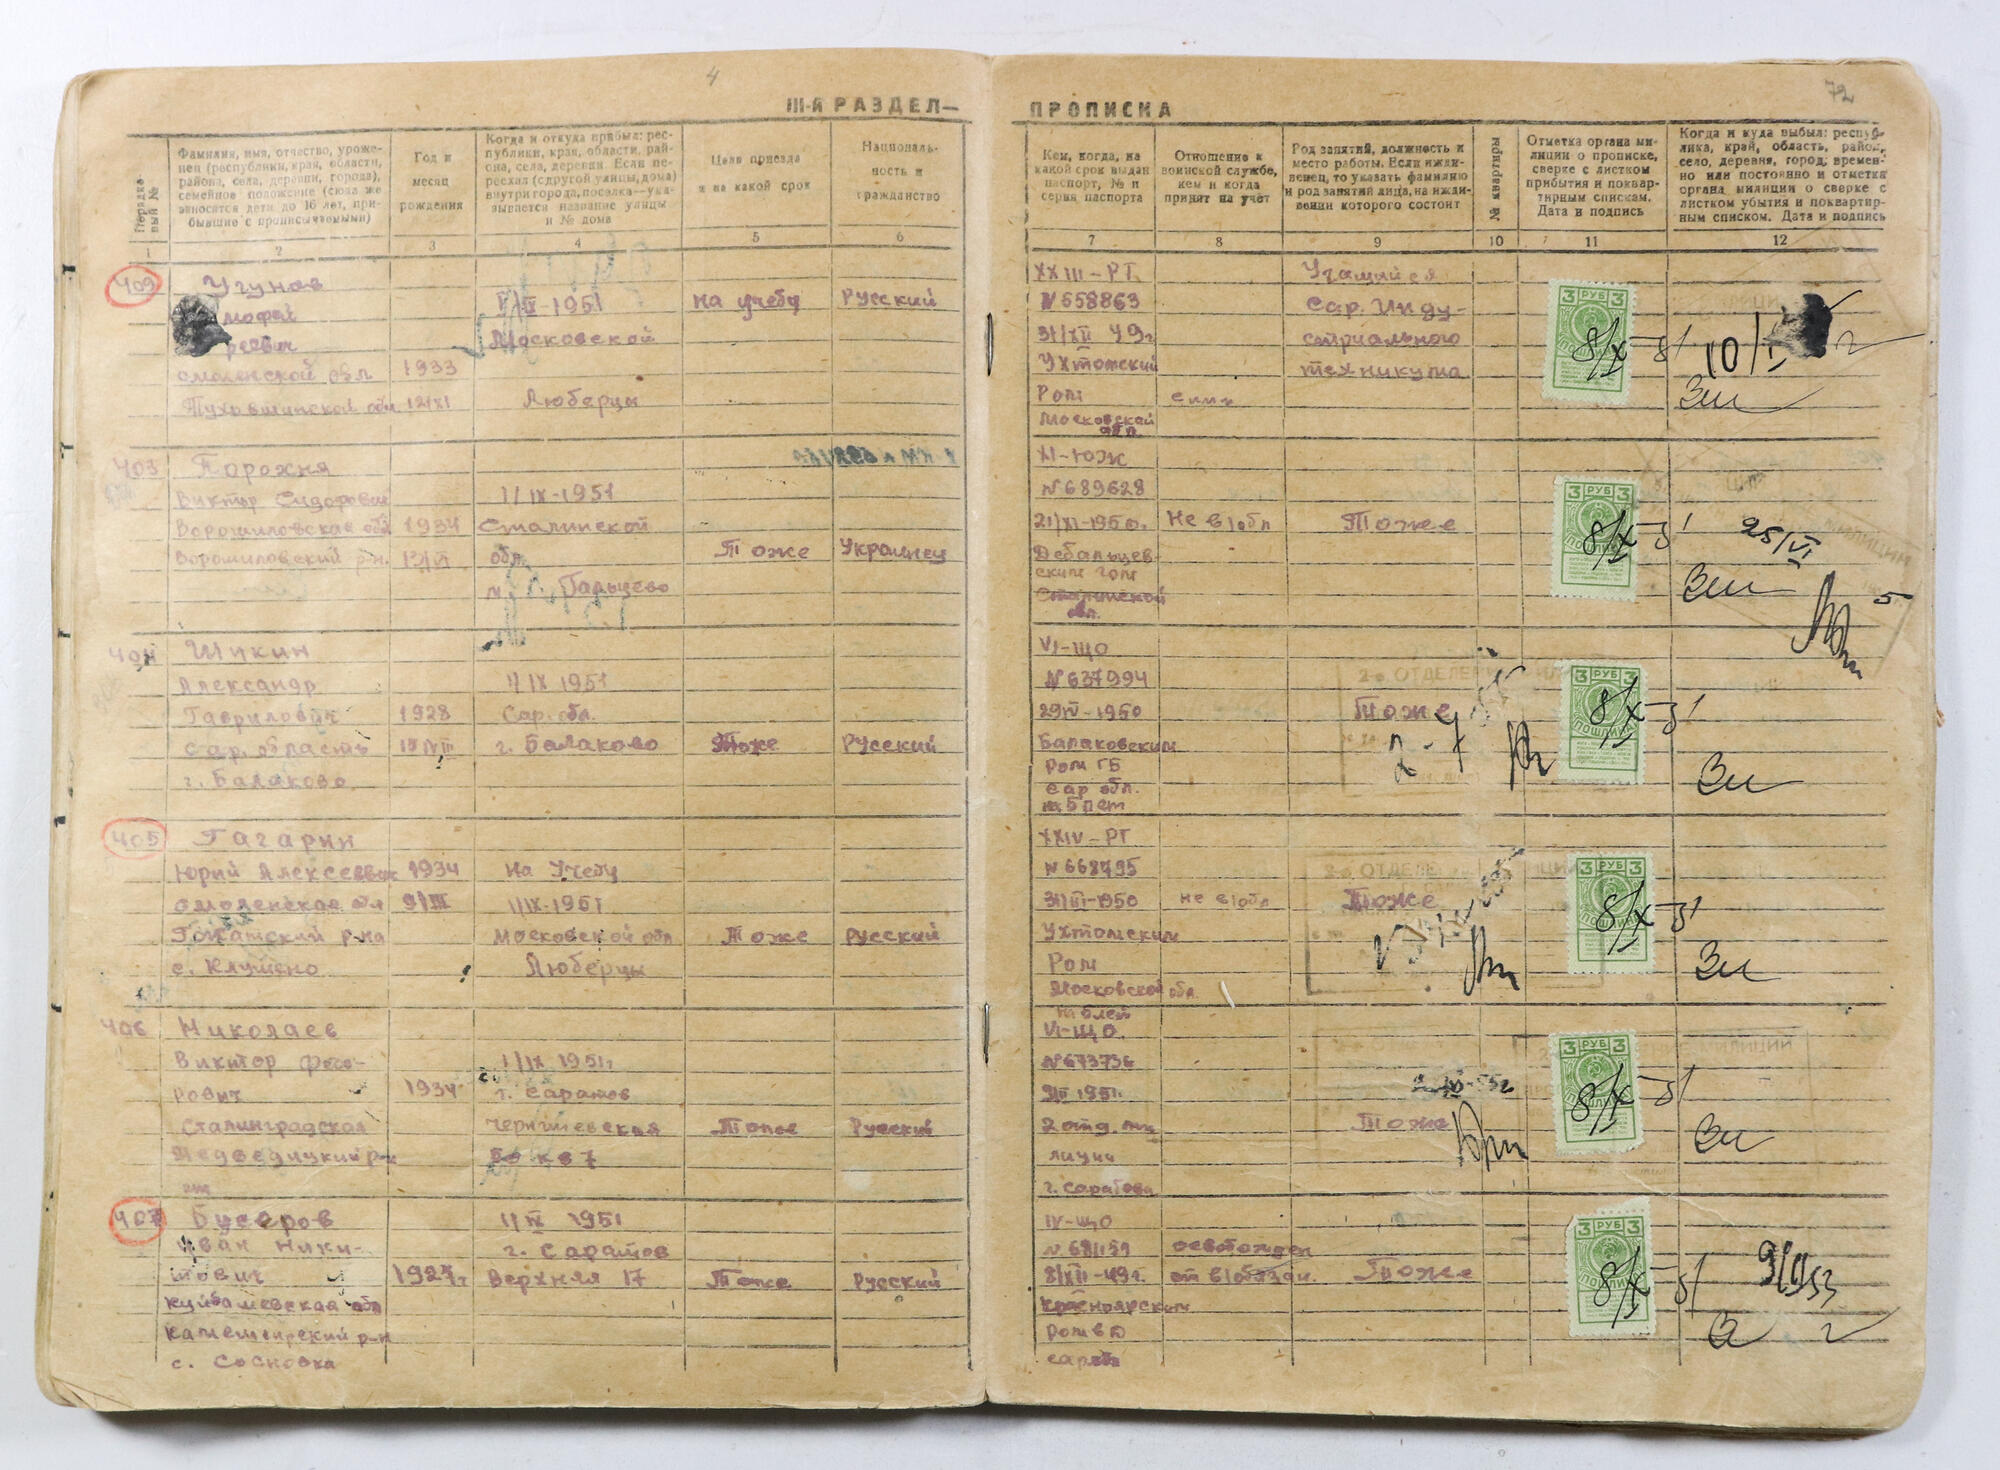 4
72
III-й РАЗДЕЛ—
ПРОПИСКА
Порядковый №
Фамилия, имя, отчество, уроженец (республики, края, области,
района, села, деревни, города),
семейное положение (сюда же
вносятся дети до 16 лет, прибывшие с прописываемыми)
Год и
месяц
рождения
Когда и откуда прибыл: республики, края, области, района, села, деревни. Если переехал (с другой улицы, дома)
внутри города, поселка—указывается название улицы
и № дома
Цель приезда
и на какой срок
Национальность и
гражданство
Кем, когда, на
какой срок выдан
паспорт, № и
серия паспорта
Отношение к
воинской службе,
кем и когда
принят на учет
Род занятий, должность и
место работы. Если иждивенец, то указать фамилию
и род занятий лица, на иждивении которого состоит
№ квартиры
Отметка органа милиции о прописке,
сверке с листком
прибытия и поквартирным спискам.
Дата и подпись
Когда и куда выбыл: республика, край, область, район,
село, деревня, город; временно или постоянно и отметка
органа милиции о сверке с
листком убытия и поквартирным списком. Дата и подпись
1 2 3 4 5 6 7 8 9 10 11 12
409
Угунов
мофей
реевич
Смоленской обл
1933
12/XI
1951
Московской
Люберцы
на учебу
Русский
XXIII-РТ
№ 658863
31/XII 49г
Ухтомский
Ром
Московской
обл.
Учащийся
Сар. Инду-
стриального
техникума
3 РУБ 3
ПОШЛИНА
8/X-51
10/I
403
Порохня
Виктор Сидорович
Ворошиловская обл
Ворошиловский р-н.
1934
1/IX-1951
Сталинской
обл.
Тоже
Украинец
XI-ЮЖ
№ 689628
21/XI-1950г.
Дебальцев-
ским гом
Сталинской
обл.
Не в/обл
Тоже
3 РУБ 3
ПОШЛИНА
8/X-51
25/VI
5
404
Шикин
Александр
Гаврилович
Сар. область
г. Балаково.
1928
1/IX 1951
Сар. обл.
г. Балаково
Тоже
Русский
VI-ЩО
№ 637994
29/IV-1950
Балаковским
Ром ГБ
Сар обл.
на 5 лет
Тоже
3 РУБ 3
ПОШЛИНА
8/X-51
405
Гагарин
Юрий Алексеевич
Смоленская обл
Гжатский р-на
с. Клушено
1934
9/III
На Учебу
1/IX-1951
Московской обл
Люберцы
Тоже
Русский
XXIV-РТ
№ 668795
1950
Ухтомским
Ром
Московской обл.
на 5 лет
не в/обл
Тоже
3 РУБ 3
ПОШЛИНА
8/X-51
406
Николаев
Виктор Федо-
рович
Сталинградская
Медведицкий р-н
1934
1/IX 1951г
г. Саратов
Чернышевская
кв 7
Тоже
Русский
VI-ЩО.
№ 673736
1951г.
2 отд. ми
лиции
г. Саратова
Тоже
3 РУБ 3
ПОШЛИНА
8/X-51
407
Бусаров
Иван Ники-
тович
Куйбышевская обл
Камешкирский р-н
с. Сосновка
1927г.
1951
г. Саратов
Верхняя 17
Тоже
Русский
IV-ЩО
8/XII-49г.
Красноярским
Сар обл
освобожден
от в/обязан.
Тоже
3 РУБ 3
ПОШЛИНА
8/X-51